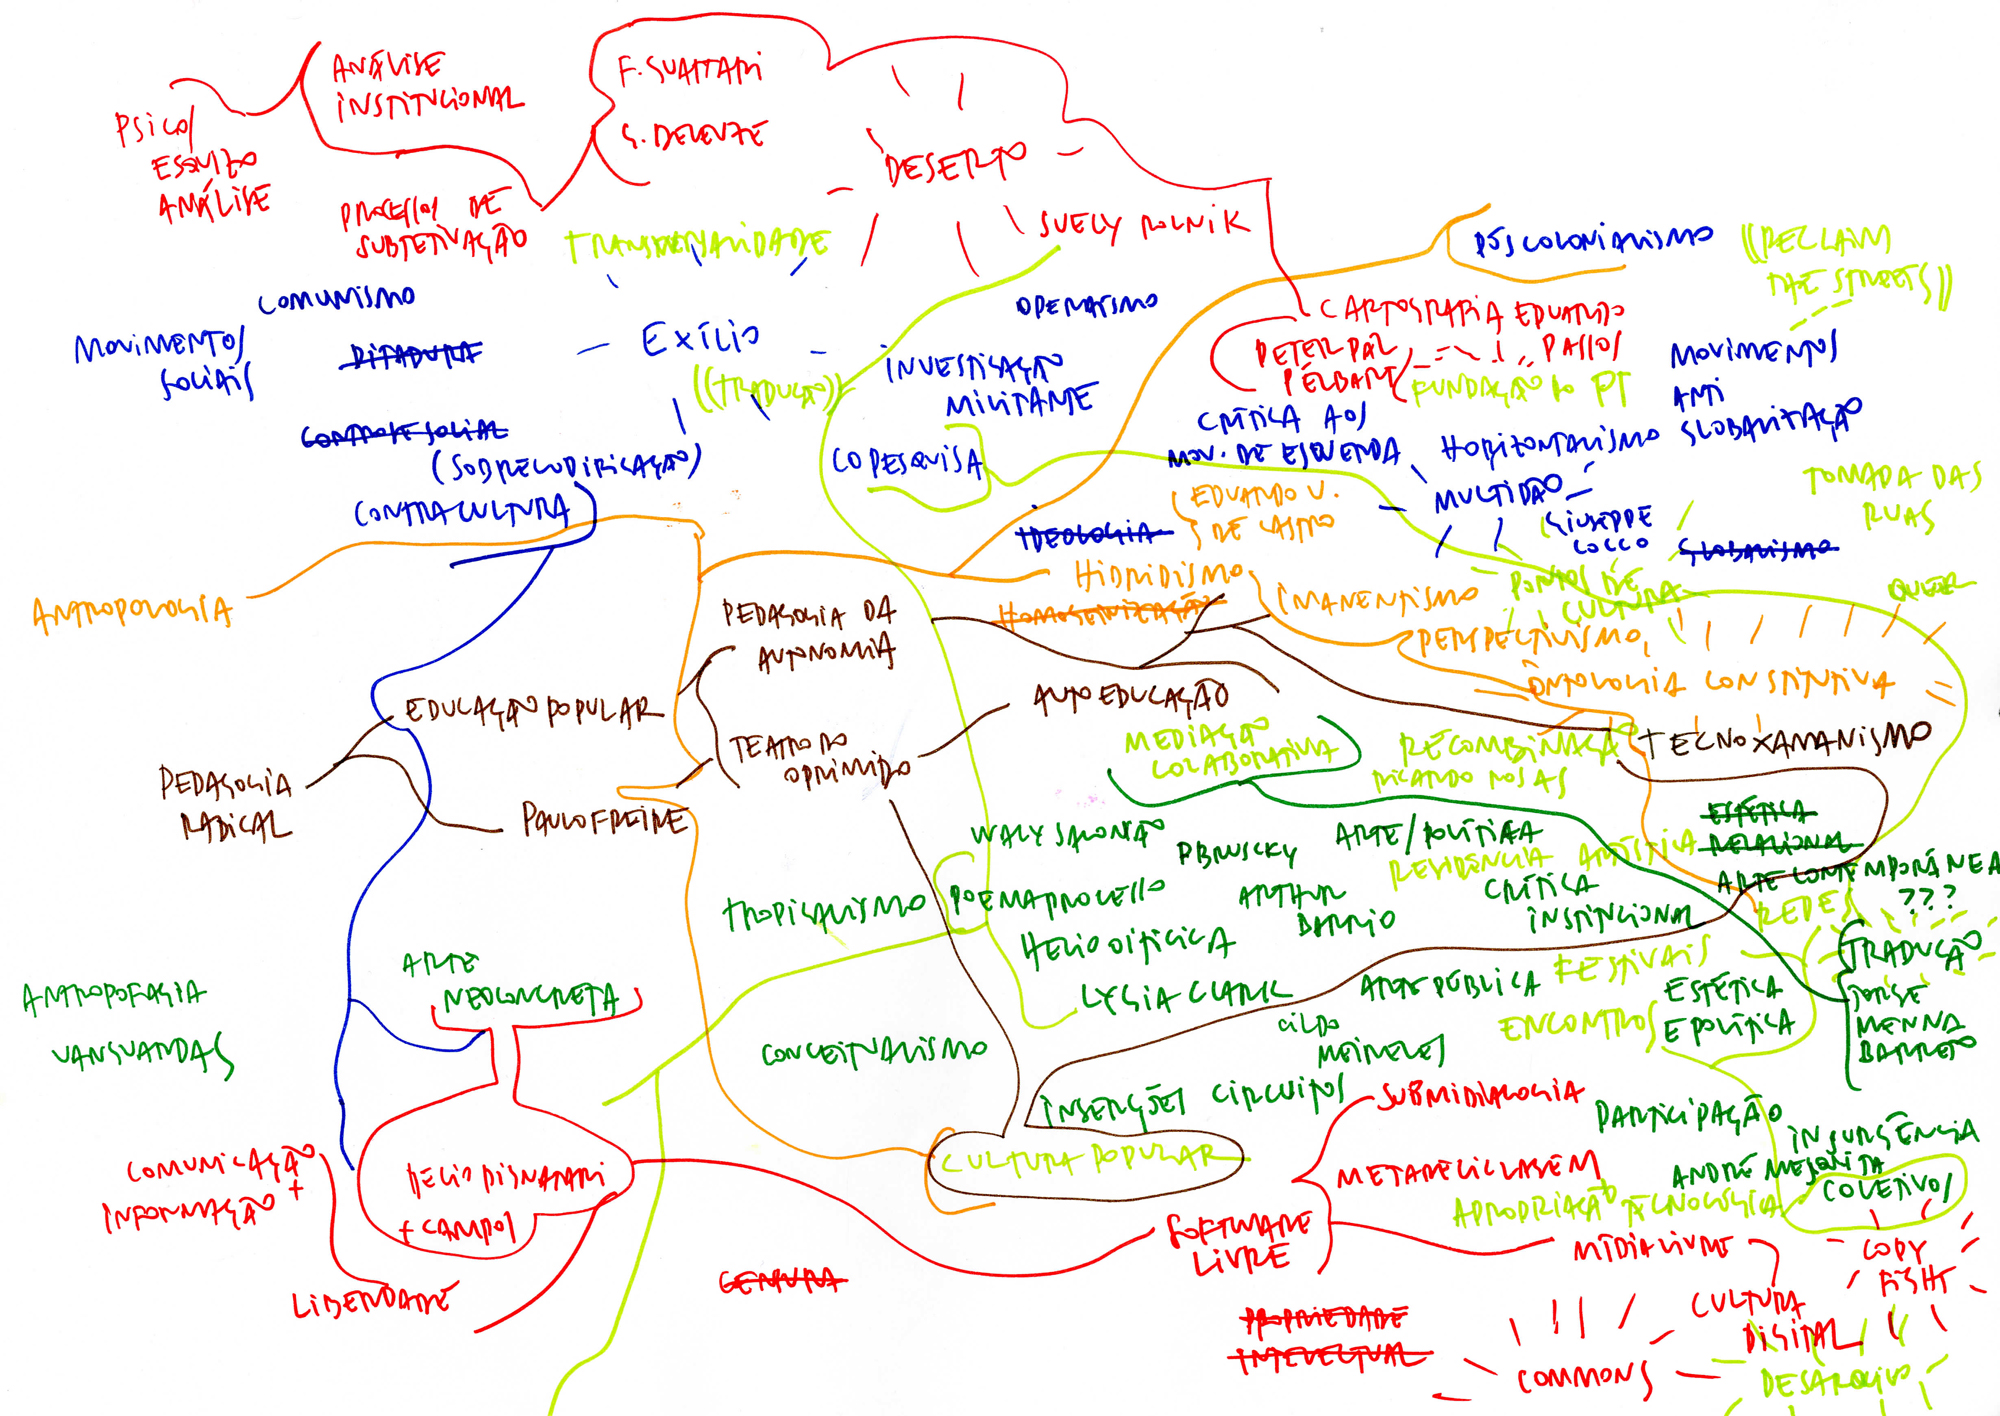 ANÁLISE
INSTITUCIONAL
PSICO/
ESQUIZO
ANÁLISE
PROCESSOS DE
SUBJETIVAÇÃO
F. GUATTARI
G. DELEUZE
DESERTO
SUELY ROLNIK
TRANSVERSALIDADE
PÓSCOLONIALISMO
((RECLAIM
THE STREETS))
COMUNISMO
MOVIMENTOS
SOCIAIS
DITADURA
EXÍLIO
((TRADUÇÃO))
OPERAISMO
INVESTIGAÇÃO
MILITANTE
COPESQUISA
CARTOGRAFIA EDUARDO
PASSOS
PETER PÁL
PÉLBART
FUNDAÇÃO DO PT
MOVIMENTOS
ANTI
GLOBALIZAÇÃO
CRÍTICA AOS
MOV. DE ESQUERDA
HORIZONTALISMO
MULTIDÃO
GIUSEPPE
COCCO
GLOBALISMO
TOMADA DAS
RUAS
CONTROLE SOCIAL
(SOBRECODIFICAÇÃO)
CONTRACULTURA
IDEOLOGIA
EDUARDO V.
DE CASTRO
HIBRIDISMO
HOMOGENIZAÇÃO
IMANENTISMO
PONTOS DE
CULTURA
QUEER
PERSPECTIVISMO
ONTOLOGIA CONSTITUTIVA
ANTROPOLOGIA
PEDAGOGIA DA
AUTONOMIA
EDUCAÇÃO POPULAR
TEATRO DO
OPRIMIDO
AUTO EDUCAÇÃO
PEDAGOGIA
RADICAL
PAULO FREIRE
MEDIAÇÃO
COLABORATIVA
RECOMBINAÇÃO
RICARDO ROSAS
TECNOXAMANISMO
ESTÉTICA
RELACIONAL
ARTE CONTEMPORÁNEA
???
WALY SALOMÃO
PBRUSCKY
ARTE/POLÍTICA
RESIDENCIA ARTÍSTICA
TROPICALISMO
POEMAPROCESSO
ARTHUR
BARRIO
CRÍTICA
INSTITUCIONAL
REDES
HELIO OITICICA
FESTIVAIS
TRADUÇÃO
JORGE
MENNA
BARRETO
ARTE
NEOCONCRETA
LYGIA CLARK
ARTE PÚBLICA
ESTÉTICA
E POLÍTICA
ENCONTROS
ANTROPOFAGIA
VANGUARDAS
CONCEITUALISMO
CILDO
MEIRELES
INSERÇÕES CIRCUITOS
SUBMIDIALOGIA
PARTICIPAÇÃO
INSURGÊNCIA
CULTURA POPULAR
METARECICLAGEM
ANDRÉ MESQUITA
COLETIVOS
APROPRIAÇÃO TECNOLÓGICA
COMUNICAÇÃO
INFORMAÇÃO +
LIBERDADE
DECIO PIGNATARI
+ CAMPOS
CENSURA
SOFTWARE
LIVRE
MÍDIA LIVRE
COPY
FIGHT
PROPRIEDADE
INTELECTUAL
CULTURA
DIGITAL
COMMONS
DESARQUIVO